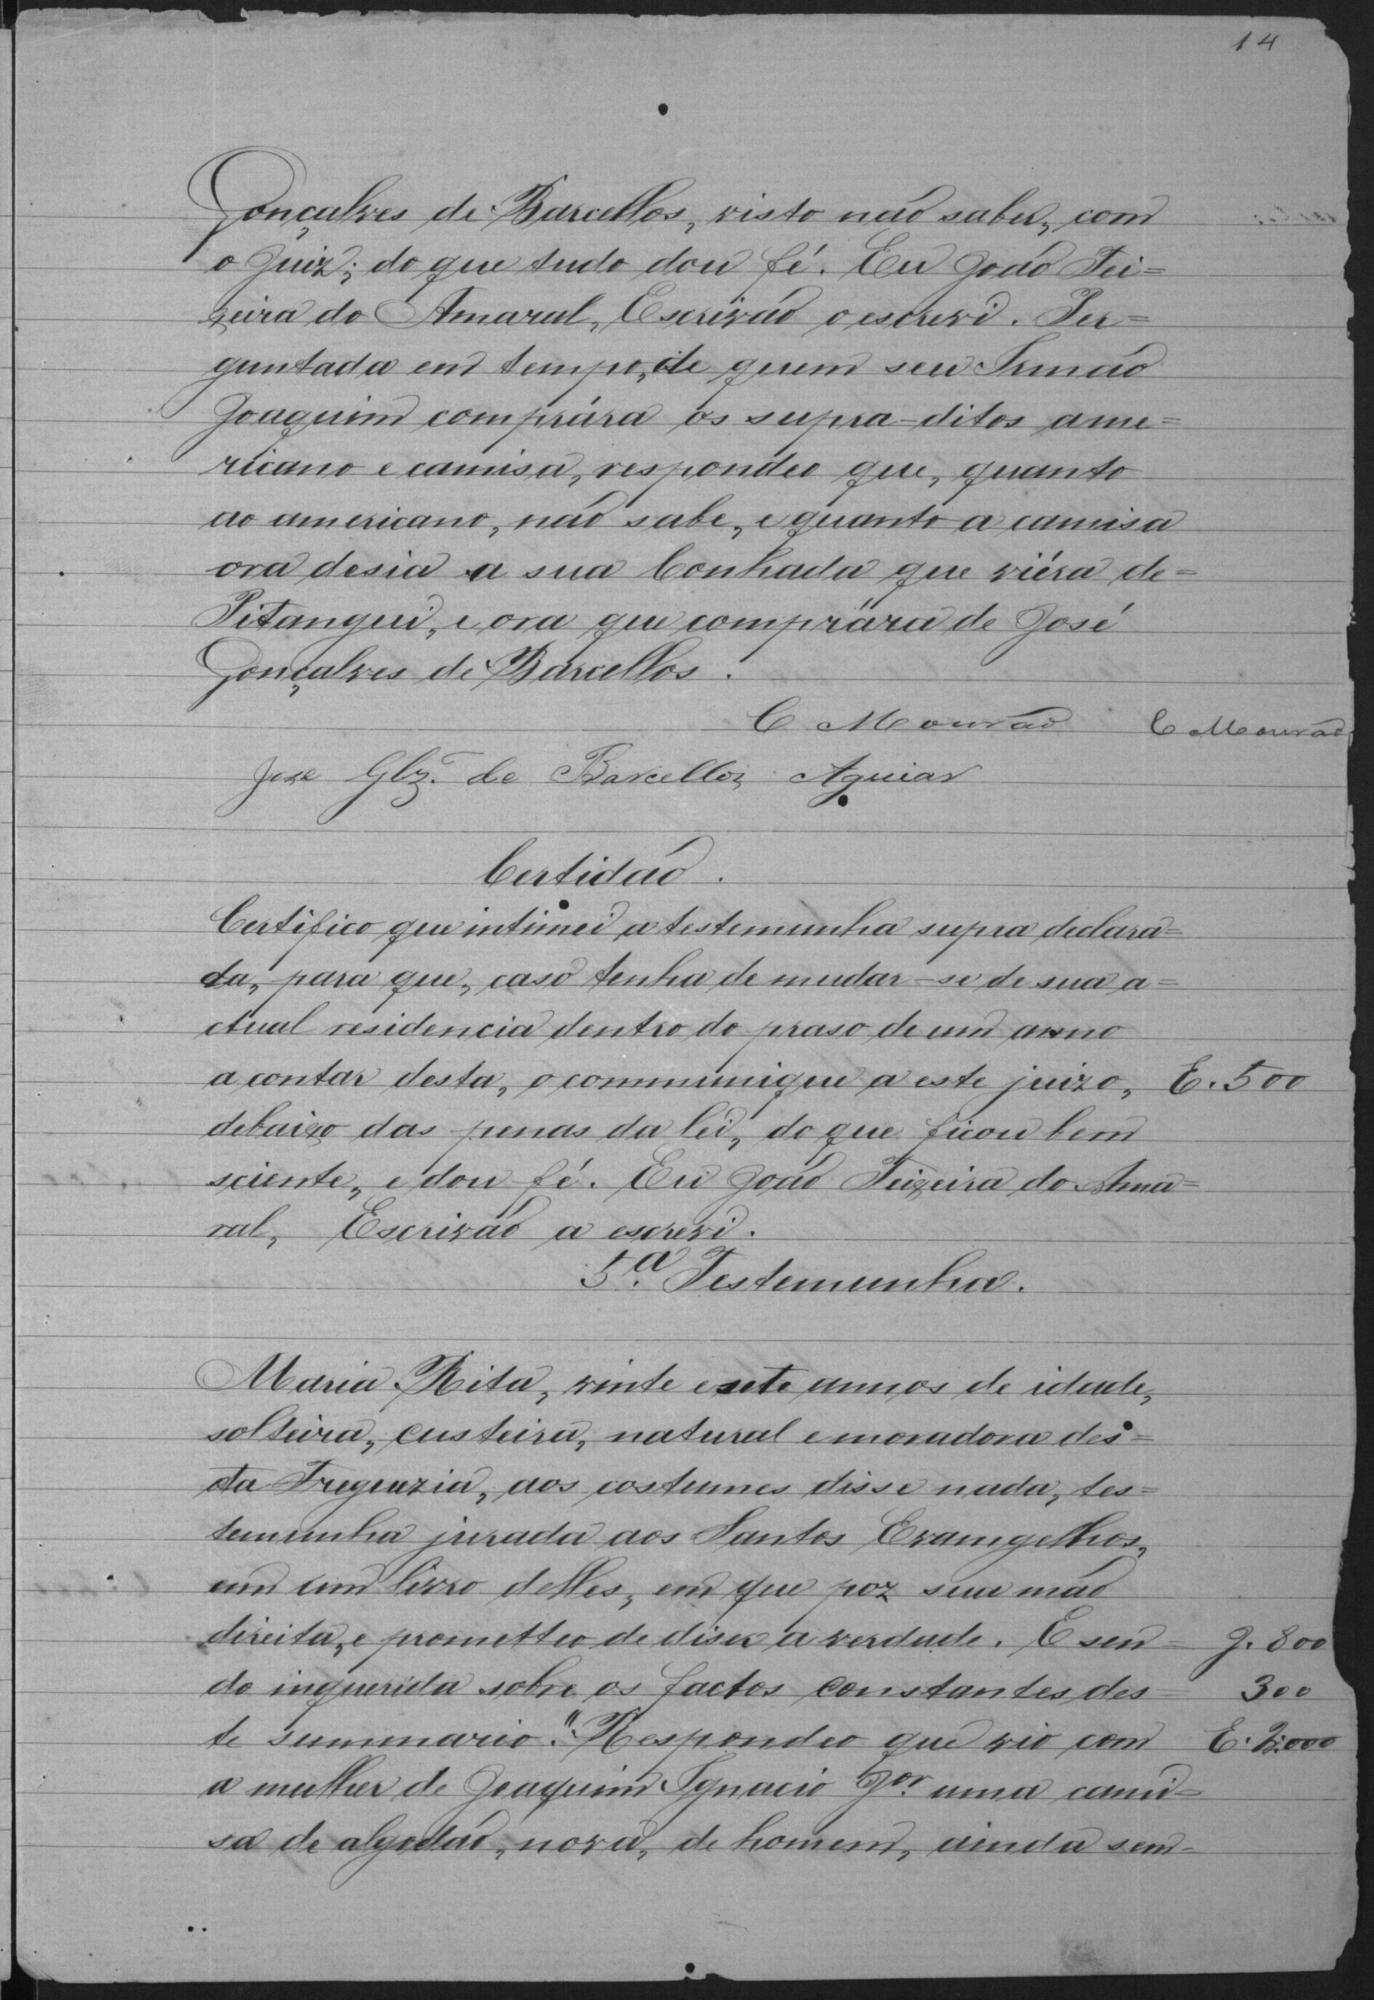 14
Gonçalves de Barcellos, visto não saber, com
o Juiz; do que tudo dou fé. Eu João Tei=
xeira do Amaral, Escrivão o escrevi. Per=
guntada em tempo, de quem seu Irmão
Joaquim comprára os supra-ditos ame=
ricano e camisa, respondeo que, quanto
ao americano, não sabe, e quanto a camisa
ora desia a sua Conhada que viéra de=
Pitangui, e ora que comprára de José
Gonçalves de Barcellos.
C Mourão C Mourão
Jose Glz. de Barcellos Aguiar
Certidão.
Certifico que intimei a testemunha supra declara=
da, para que, caso tenha de mudar-se de sua a=
ctual residencia dentro do praso de um anno
a contar desta, o communique a este juizo, E. 500
debaixo das penas da lei, do que ficou bem
sciente, e dou fé. Eu João Teixeira do Ama=
ral, Escrivão a escrevi.
5.a Testemunha.
Maria Rita, vinte e sete annos de idade,
solteira, custeira, natural e moradora des=
ta Freguezia, aos costumes disse nada, tes=
temunha jurada aos Santos Evangelhos,
em um livro delles, em que poz sua mão
direita, e prometteo de diser a verdade. E sen= J. 800
do inquerida sobre os factos constantes des= 300
te summario." Respondeo que vio com E. 2.000
a mulher de Joaquim Ignacio Jor. uma cami=
sa de algodão, nova, de homem, ainda sem-